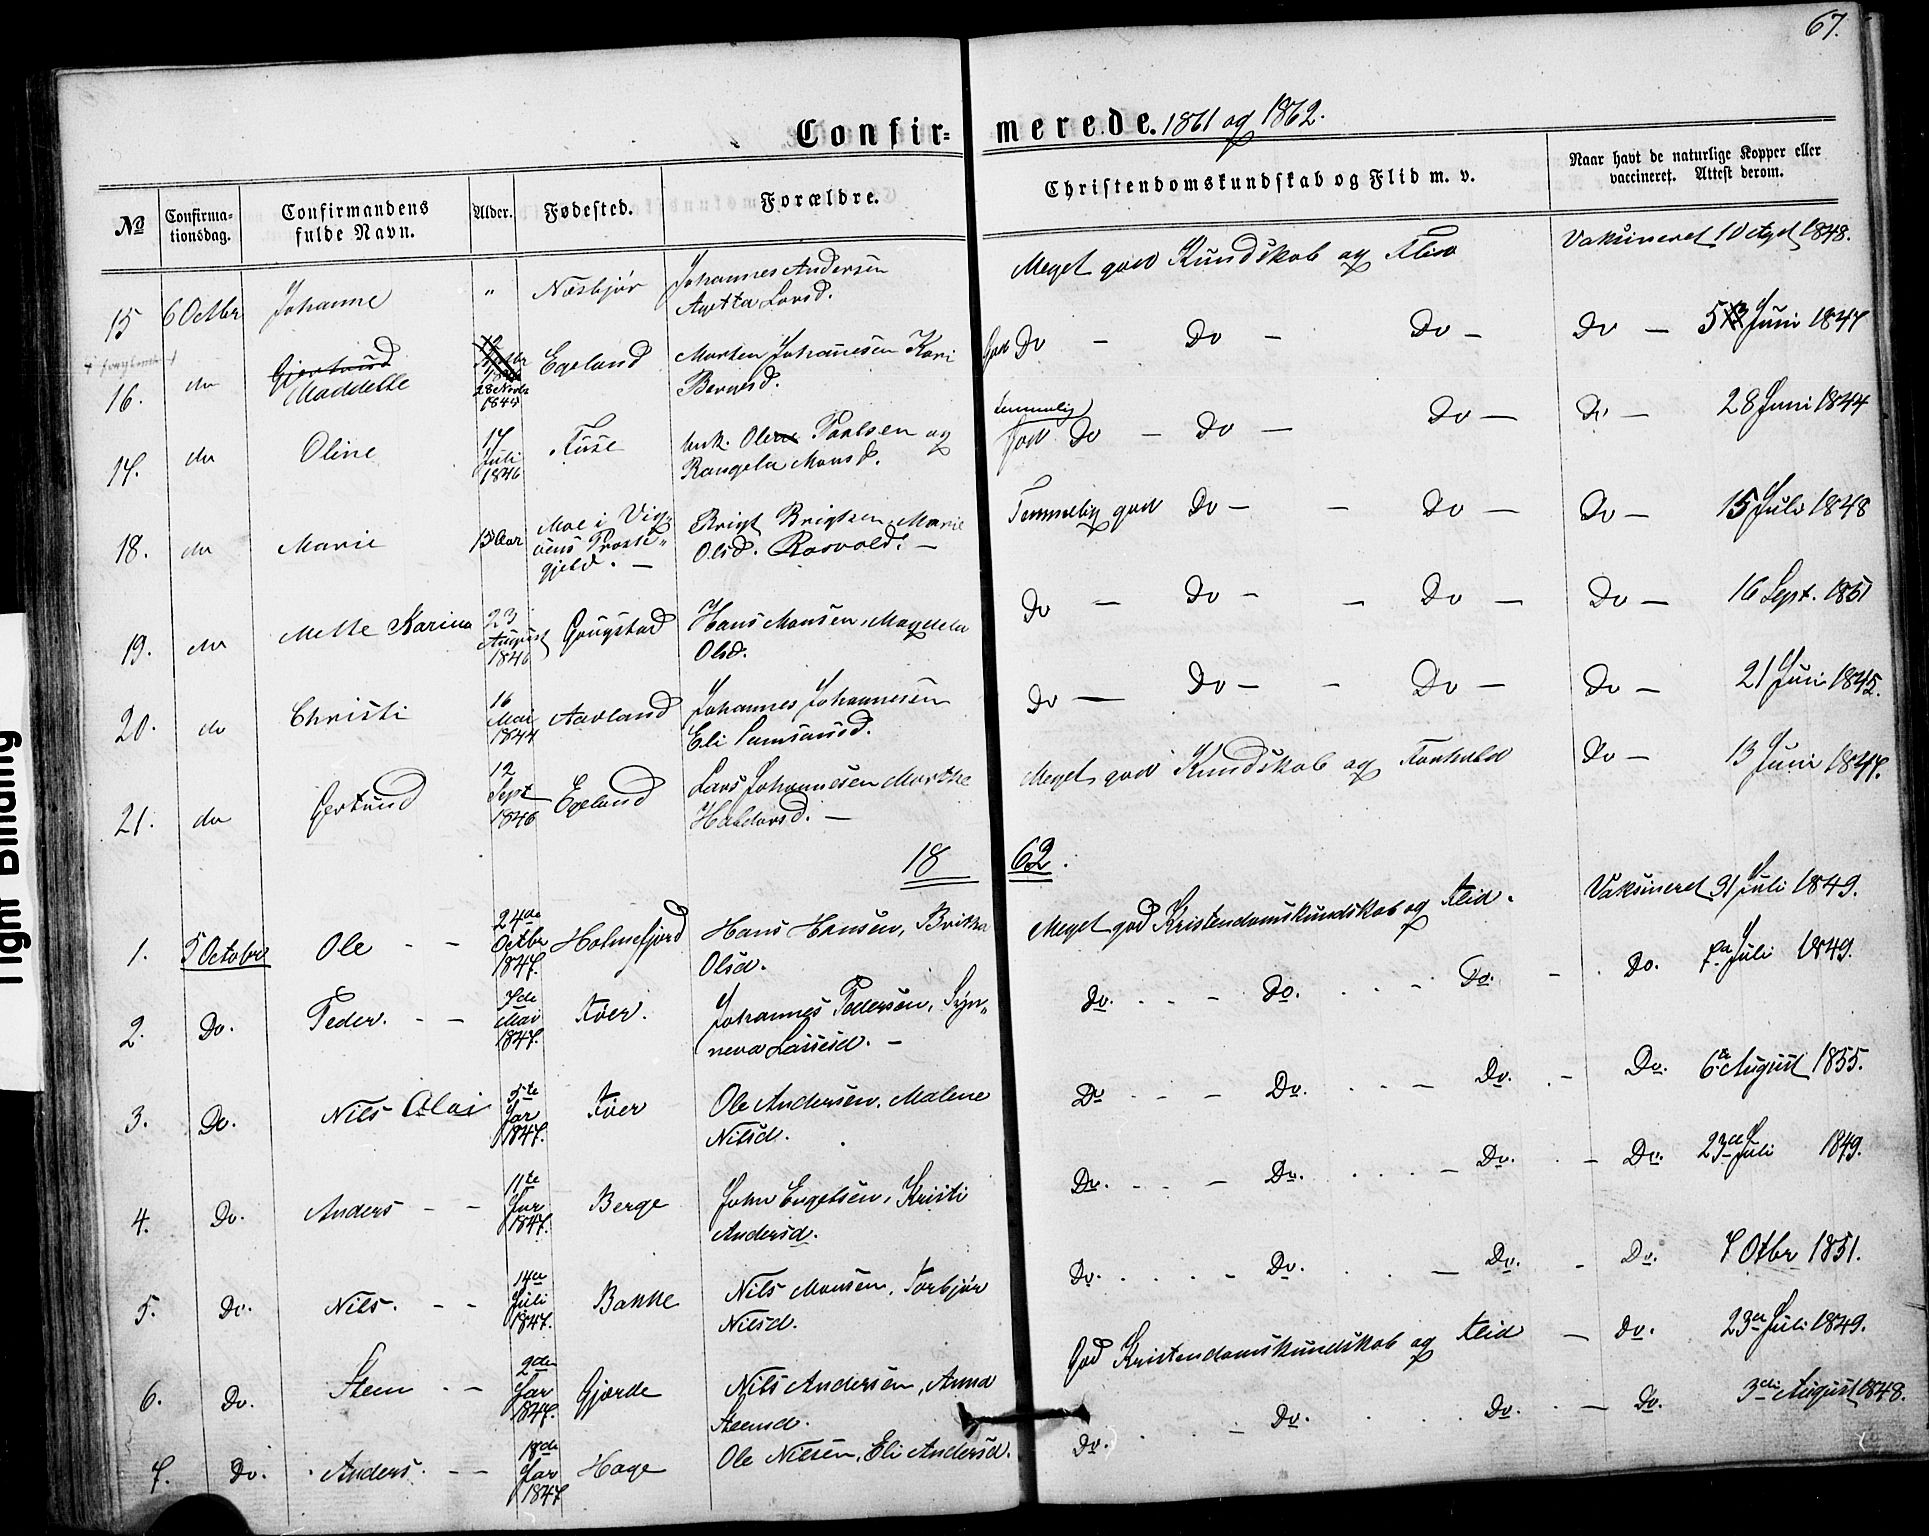 67.
Confirmerede. 1861 og 1862.
No Confirmationsdag. Confirmandens fulde Navn. Alder. Fødested. Forældre. Christendomskundskab og Flid m. v. Naar havt de naturlige Kopper eller vaccineret. Attest derom.
15 6 Octbr Johanne " Næsbjør Johannes Andersen Meget god Kundskab og Flid Vaksineret 10 1848.
16. do Gjertrud Maddelle 28 1845 Egeland Morten Johanesen Kari God Do - Do - Do - Do - 5 Juni 1847
17. do Oline 17 Juli 1846 Fuse Paalsen og Rangela Monsd. temmelig god Do - Do - Do - Do - 28 Juni 1844
18. do Marie 15 Aar Moe i Præstegjeld. - Brigt Brigtsen, Marie Olsd. Rosvold. - Temmelig god Do - - Do - Do - 15 Juli 1848
19. do Mette Karina 23 August 1846 Gougstad Hans Monsen, Magdela Olsd. Do - Do - - Do - Do - 16 Sept. 1851
20. do Christi 16 Mai 1844 Aarland Johannes Johannesen Eli Samsonsd. Do - Do - - Do - Do - 21 Juni 1845.
21. do Gertrud 12 Sept 1846 Egeland Lars Johannesen Marthe Haldorsd. - Meget god Kundskab og Forhold Do - 13 Juni 1847.
1862.
1. 5 October Ole - - 24de Octbr 1847. Holmefjord Hans Hansen, Britha Olsd. Meget god Kristendomskundskab og Flid. Vaksineret 31 Juli 1849.
2. Do. Peder. - - 7de Mai 1847. Koer. Johannes Pedersen, Synneva Lassesd. - Do. Do. Do. Do. Juli 1849.
3. Do. Nils Olai 5te Jar 1847. Koer Ole Andersen, Malene Nilsd. Do Do. Do. Do. 6te August 1855.
4. Do. Anders - - 11te Jar 1847. Berge John Engelsen, Kristi Andersd. Do. Do. Do. Do. 23de Juli 1849.
5. Do. Nils. - - 14de Juli 1847. Bakke Nils Monsen, Torbjør Nilsd. Do. Do. Do. Do. 7 Otbr 1851.
6. Do. Steen - - 2den Jar 1847. Gjærde Nils Andersen, Anna Steensd. God Kristendomskundskab og Flid - Do. 23de Juli 1849.
7. Do. Anders. - - 18de Jar 1847 Hage Ole Nilsen, Eli Andersd. Do. Do. Do. Do. 3die August 1848.
Tight Binding